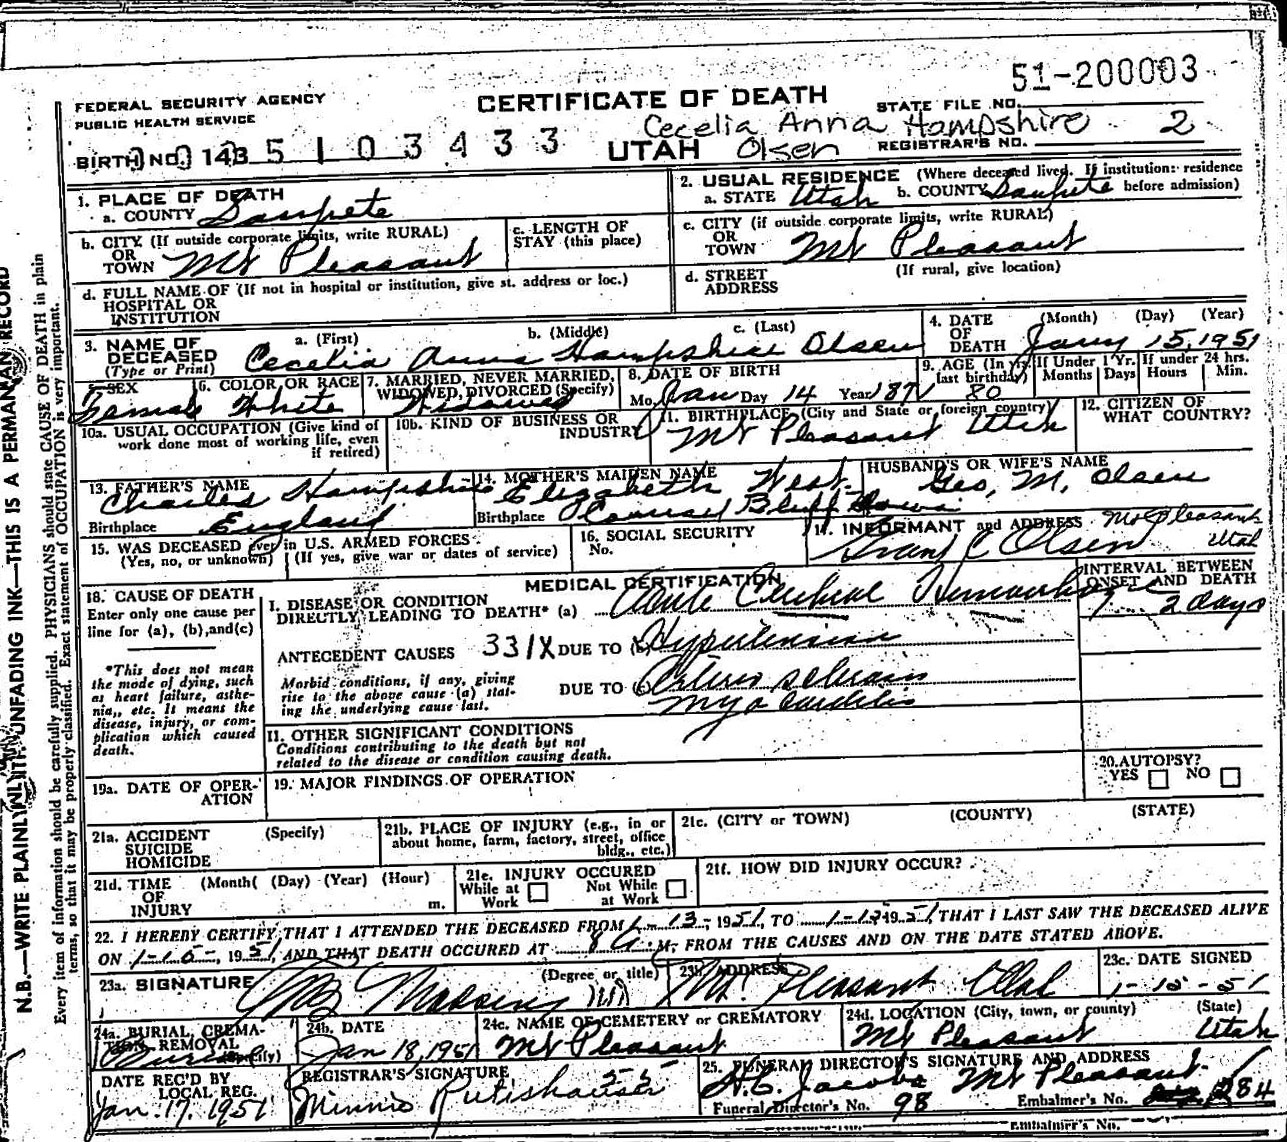 51-200003
FEDERAL SECURITY AGENCY
PUBLIC HEALTH SERVICE
CERTIFICATE OF DEATH
STATE FILE NO.
Cecelia Anna Hampshire 2
BIRTH NO. 143 5103433
UTAH Olsen
REGISTRAR'S NO.
1. PLACE OF DEATH
a. COUNTY Sanpete
2. USUAL RESIDENCE (Where deceased lived. If institution: residence before admission)
a. STATE Utah b. COUNTY Sanpete
b. CITY (If outside corporate limits, write RURAL)
OR
TOWN Mt Pleasant
c. LENGTH OF
STAY (this place)
c. CITY (if outside corporate limits, write RURAL)
OR
TOWN Mt Pleasant
d. FULL NAME OF (If not in hospital or institution, give st. address or loc.)
HOSPITAL OR
INSTITUTION
d. STREET
ADDRESS
(If rural, give location)
3. NAME OF
DECEASED
(Type or Print)
a. (First) b. (Middle) c. (Last)
Cecelia Anna Hampshire Olsen
4. DATE
OF
DEATH
(Month) (Day) (Year)
Jany 15, 1951
5. SEX
Female
6. COLOR OR RACE
White
7. MARRIED, NEVER MARRIED,
WIDOWED, DIVORCED (Specify)
Widowed
8. DATE OF BIRTH
Mo. Jan Day 14 Year 1871
9. AGE (In yrs. last birthday)
80
If Under 1 Yr.
Months Days
If under 24 hrs.
Hours Min.
10a. USUAL OCCUPATION (Give kind of
work done most of working life, even
if retired)
10b. KIND OF BUSINESS OR
INDUSTRY
11. BIRTHPLACE (City and State or foreign country)
Mt Pleasant Utah
12. CITIZEN OF
WHAT COUNTRY?
13. FATHER'S NAME
Charles Hampshire
Birthplace England
14. MOTHER'S MAIDEN NAME
Elizabeth West
Birthplace Bluff Iowa
HUSBAND'S OR WIFE'S NAME
Geo. M. Olsen
15. WAS DECEASED ever in U.S. ARMED FORCES
(Yes, no, or unknown) (If yes, give war or dates of service)
16. SOCIAL SECURITY
No.
17. INFORMANT and ADDRESS Mt Pleasant
Olsen Utah
18. CAUSE OF DEATH
Enter only one cause per
line for (a), (b), and (c)
*This does not mean
the mode of dying, such
as heart failure, asthe-
nia, etc. It means the
disease, injury, or com-
plication which caused
death.
MEDICAL CERTIFICATION
INTERVAL BETWEEN
ONSET AND DEATH
I. DISEASE OR CONDITION
DIRECTLY LEADING TO DEATH* (a) Acute Cerebral Hemorrhage 2 days
ANTECEDENT CAUSES 331X DUE TO (b) Hypertension
Morbid conditions, if any, giving
rise to the above cause (a) stat-
ing the underlying cause last.
DUE TO (c) Arterio sclerosis
Myocarditis
II. OTHER SIGNIFICANT CONDITIONS
Conditions contributing to the death but not
related to the disease or condition causing death.
19a. DATE OF OPER-
ATION
19. MAJOR FINDINGS OF OPERATION
20. AUTOPSY?
YES NO
21a. ACCIDENT
SUICIDE
HOMICIDE
(Specify)
21b. PLACE OF INJURY (e.g., in or
about home, farm, factory, street, office
bldg., etc.)
21c. (CITY or TOWN) (COUNTY) (STATE)
21d. TIME
OF
INJURY
(Month( (Day) (Year) (Hour)
m.
21e. INJURY OCCURED
While at Work
Not While at Work
21f. HOW DID INJURY OCCUR?
22. I HEREBY CERTIFY THAT I ATTENDED THE DECEASED FROM 1-13-1951, TO 1-15 1951, THAT I LAST SAW THE DECEASED ALIVE
ON 1-15-, 1951, AND THAT DEATH OCCURED AT 8 A. M, FROM THE CAUSES AND ON THE DATE STATED ABOVE.
23a. SIGNATURE
(Degree or title)
Madsen
23b. ADDRESS
Mt. Pleasant Utah
23c. DATE SIGNED
1-15-51
24a. BURIAL, CREMA-
TION, REMOVAL
(Specify)
Burial
24b. DATE
Jan 18, 1951
24c. NAME OF CEMETERY or CREMATORY
Mt Pleasant
24d. LOCATION (City, town, or county) (State)
Mt Pleasant Utah
DATE REC'D BY
LOCAL REG.
Jan. 17, 1951
REGISTRAR'S SIGNATURE
Minnie Rutishauser
25. FUNERAL DIRECTOR'S SIGNATURE AND ADDRESS
Jacobs Mt Pleasant
Funeral Director's No. 98 Embalmer's No. 284
Embalmer's No.
N.B.—WRITE PLAINLY WITH UNFADING INK—THIS IS A PERMANENT RECORD
Every item of information should be carefully supplied. PHYSICIANS should state CAUSE OF DEATH in plain
terms, so that it may be properly classified. Exact statement of OCCUPATION is very important.